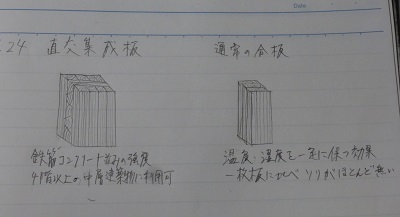 Date
.24 直交集成板
通常の合板
鉄筋コンクリート並みの強度
4階以上の中層建築物に利用可
温度・湿度を一定に保つ効果
一枚板に比べソリがほとんど無い